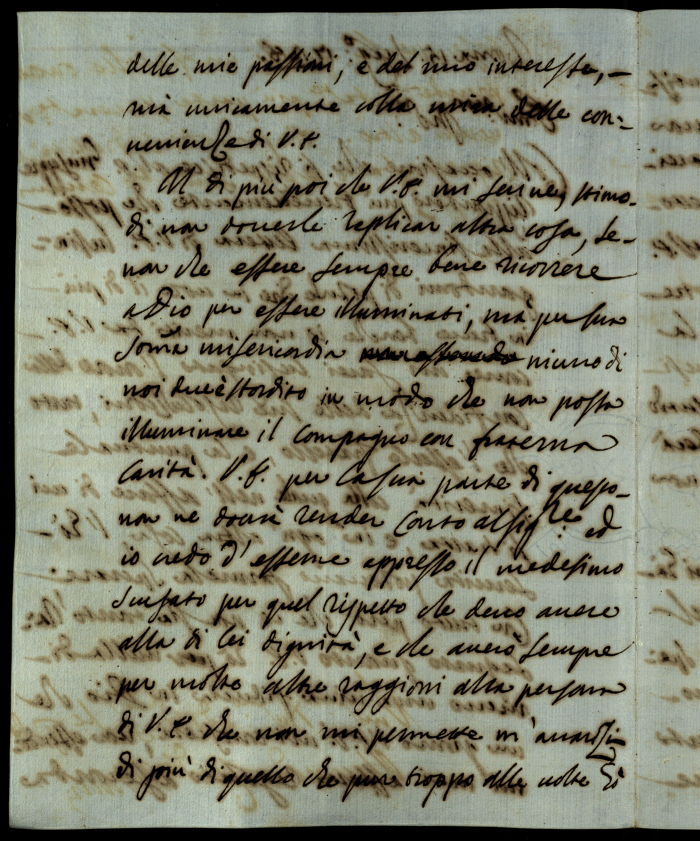 delle mie passioni, e del mio interesse, –
mà unicamente colla mira delle con=
nenienze di V. E.
Al di più poi che V. E. mi scrive, stimo
di non doverle replicar altra cosa, se–
non che essere sempre bene ricorrere
a Dio per essere illuminati, mà per sua
somma misericordia niuno di
noi due è stordito in modo che non possa
illuminare il compagno con fraterna
carità. V. E. per la sua parte di questo–
non ne dovrà render conto al Sig.re ed
io credo d'esserne appresso il medesimo
scusato per quel rispetto che devo avere
alla di lei dignità, e che averò sempre
per molte altre raggioni alla persona
di V. E. che non mi permette m'avanzi
di più di quello che pur troppo alle volte